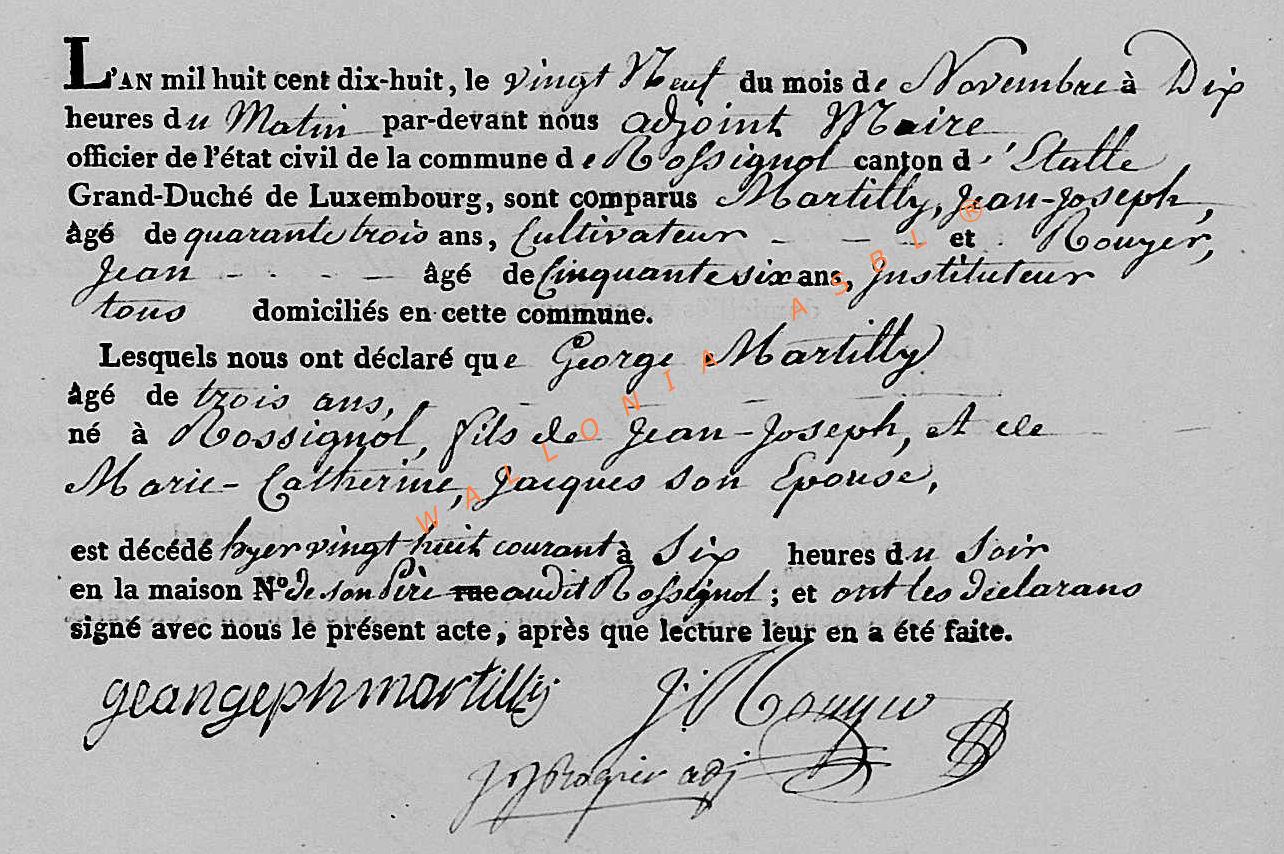 L'AN mil huit cent dix-huit, le vingt Neuf du mois de Novembre à Dix
heures du Matin par-devant nous adjoint Maire
officier de l'état civil de la commune de Rossignol canton d'Etalle
Grand-Duché de Luxembourg, sont comparus Martilly, Jean-Joseph,
âgé de quarante trois ans, Cultivateur - - - et Rouyer,
Jean - - - - âgé de Cinquante six ans, Instituteur
tous domiciliés en cette commune.
Lesquels nous ont déclaré que George Martilly
âgé de trois ans, - - -
né à Rossignol, fils de Jean-Joseph, et de
Marie-Catherine, Jacques son Epouse,
est décédé hyer vingt huit courant à Six heures du Soir
en la maison N.º de son Père rue audit Rossignol ; et ont les déclarans
signé avec nous le présent acte, après que lecture leur en a été faite.
geangeph martilly J: Rouyer
adj
WALLONIA ASBL ®